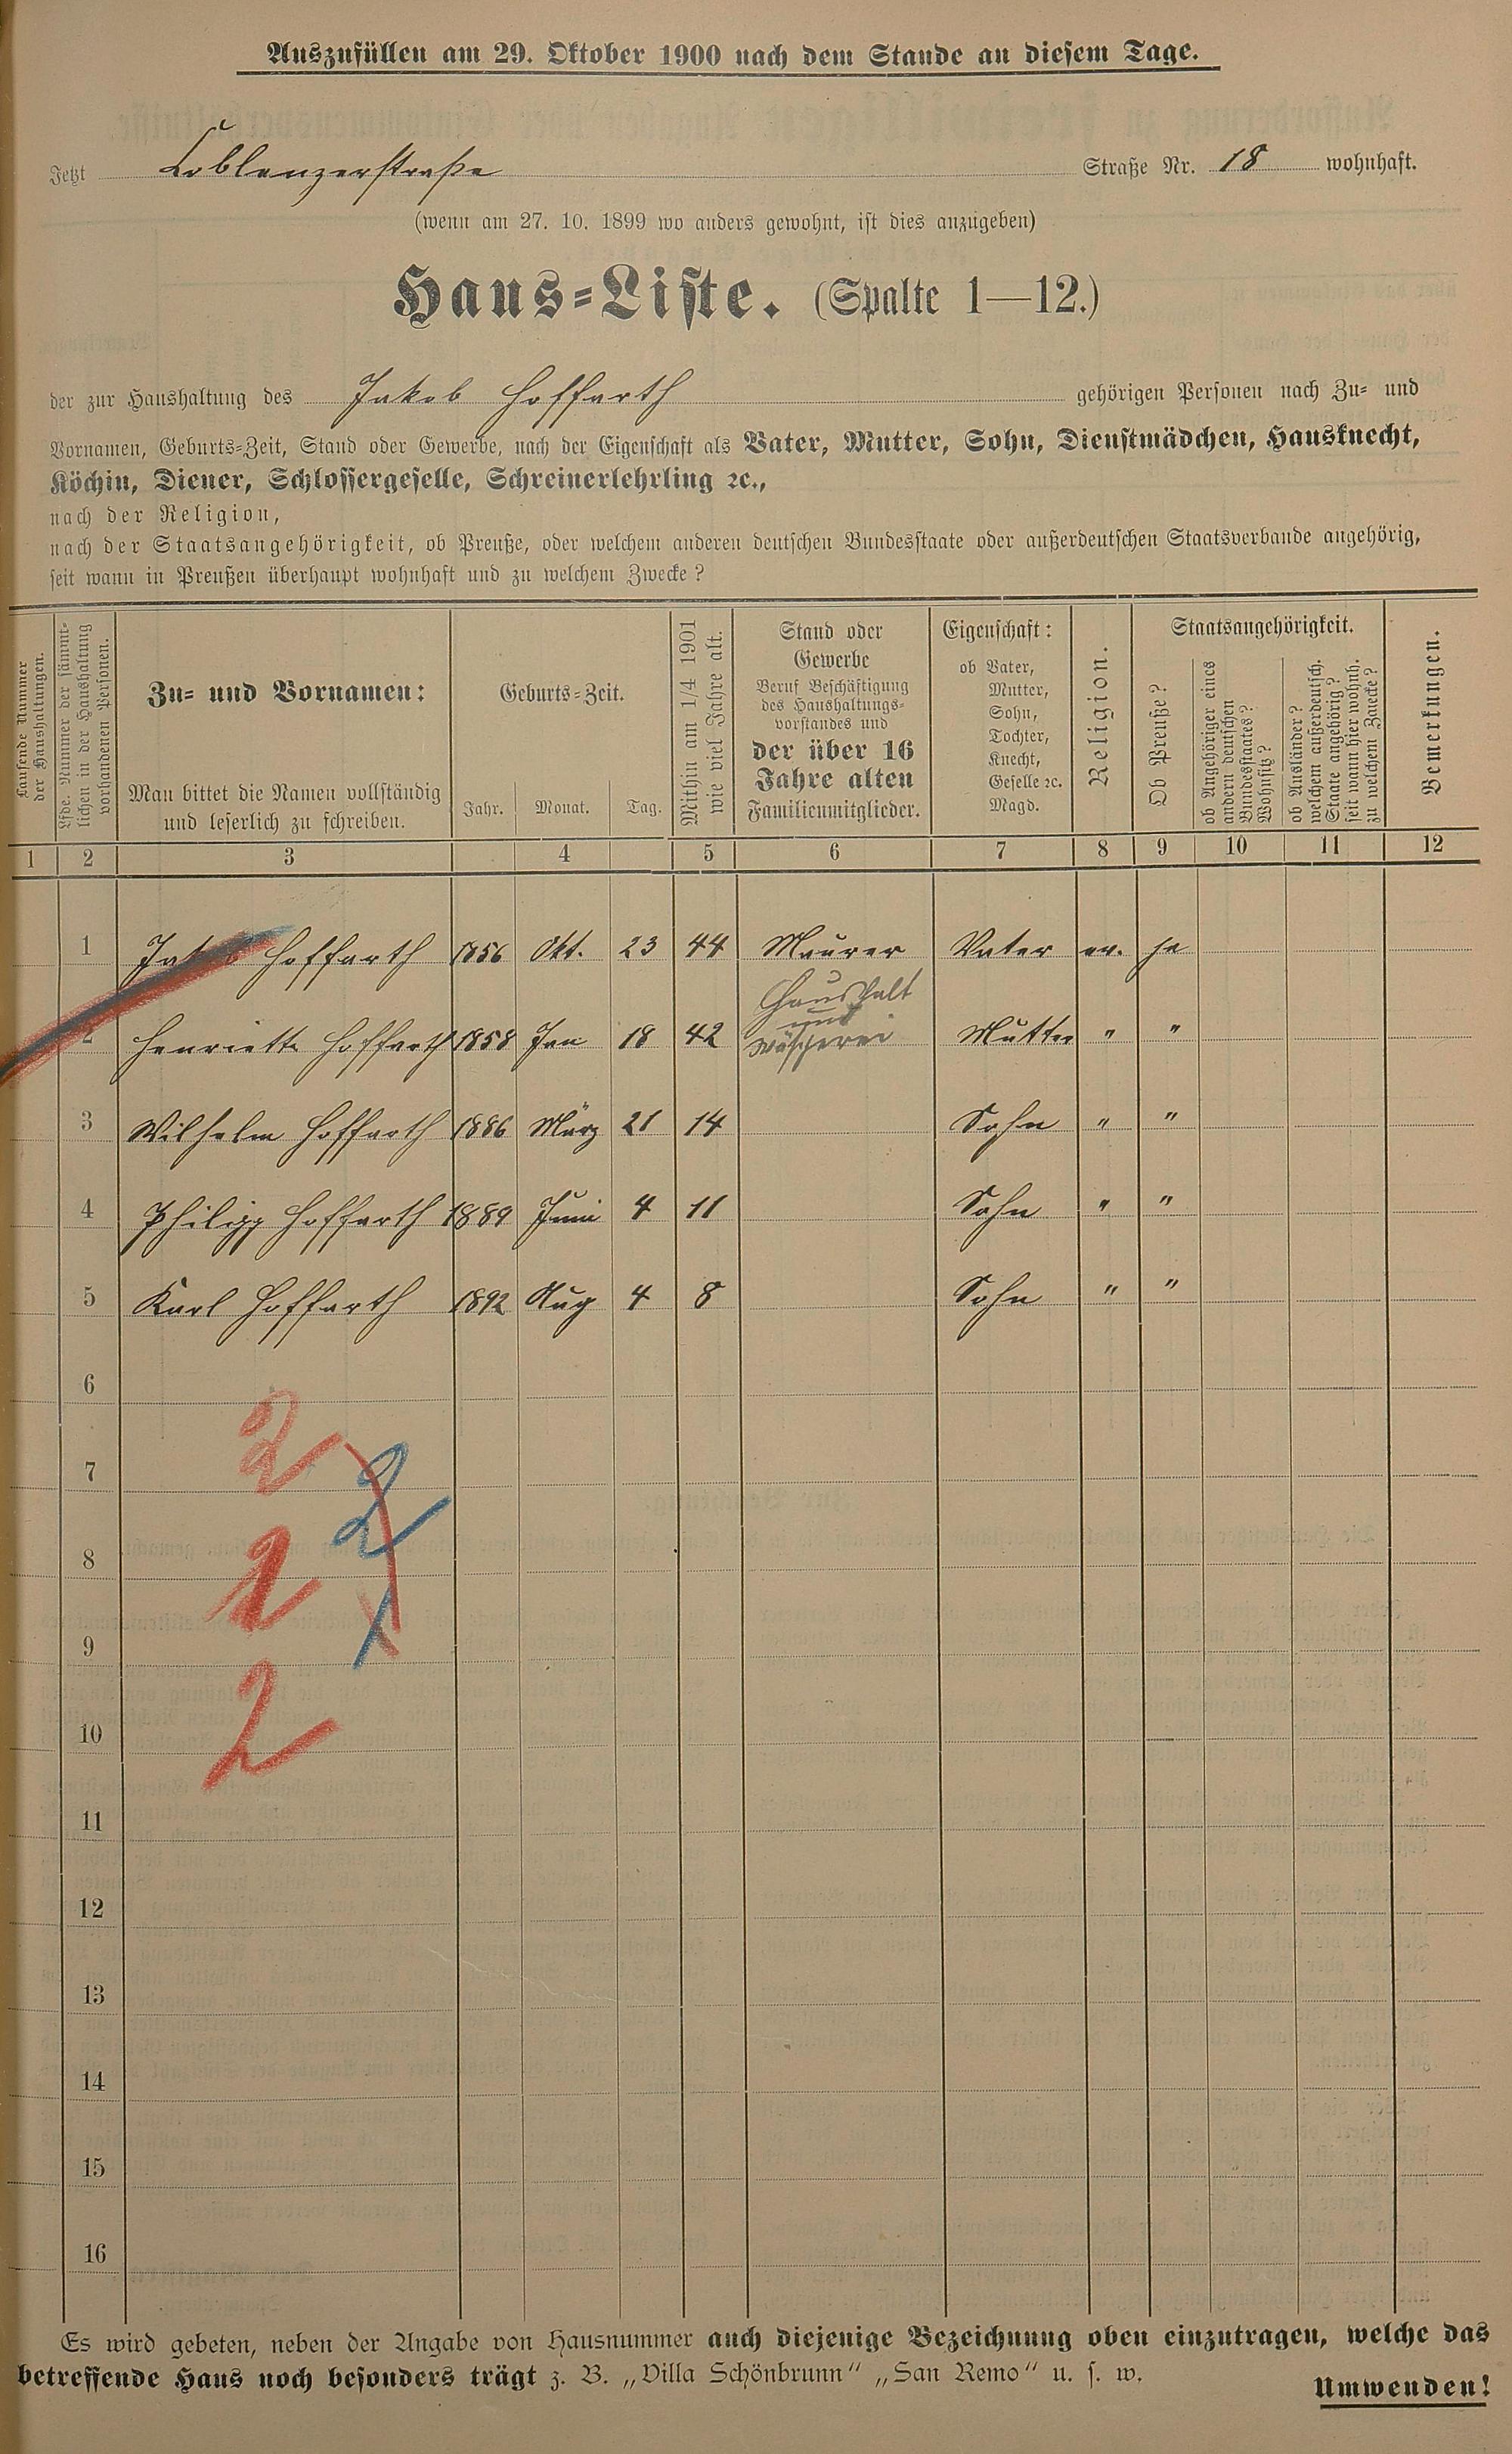 Auszufüllen am 29. Oktober 1900 nach dem Stande an diesem Tage.
Jetzt Coblenzerstraße Straße Nr. 18 wohnhaft.
(wenn am 27. 10. 1899 wo anders gewohnt, ist dies anzugeben)
Haus-Liste. (Spalte 1—12.)
der zur Haushaltung des Jakob Hoffarth gehörigen Personen nach Zu- und
Vornamen, Geburts-Zeit, Stand oder Gewerbe, nach der Eigenschaft als Vater, Mutter, Sohn, Dienstmädchen, Hausknecht,
Köchin, Diener, Schlossergeselle, Schreinerlehrling ꝛc.,
nach der Religion,
nach der Staatsangehörigkeit, ob Preuße, oder welchem anderen deutschen Bundesstaate oder außerdeutschen Staatsverbande angehörig,
seit wann in Preußen überhaupt wohnhaft und zu welchem Zwecke?
Laufende Nummer
der Haushaltungen.
Lfde. Nummer der sämmt-
lichen in der Haushaltung
vorhandenen Personen.
Zu- und Vornamen:
Man bittet die Namen vollständig
und leserlich zu schreiben.
Geburts-Zeit.
Jahr. Monat. Tag.
Mithin am 1/4 1901
wie viel Jahre alt.
Stand oder
Gewerbe
Beruf Beschäftigung
des Haushaltungs-
vorstandes und
der über 16
Jahre alten
Familienmitglieder.
Eigenschaft:
ob Vater,
Mutter,
Sohn,
Tochter,
Knecht,
Geselle ꝛc.
Magd.
Religion.
Staatsangehörigkeit.
Ob Preuße?
ob Angehöriger eines
andern deutschen
Bundesstaates?
Wohnsitz?
ob Ausländer?
welchem außerdeutsch.
Staate angehörig?
seit wann hier wohnh.
zu welchem Zwecke?
Bemerkungen.
1 2 3 4 5 6 7 8 9 10 11 12
1 Jakob Hoffarth 1856 Okt. 23 44 Maurer Vater ev. ja
Haushalt
und
Wäscherei
2 Henriette Hoffarth 1858 Jan 18 42 Mutter " "
3 Wilhelm Hoffarth 1886 März 21 14 Sohn " "
4 Philipp Hoffarth 1889 Juni 4 11 Sohn " "
5 Karl Hoffarth 1892 Aug 4 8 Sohn " "
6
2
7
2
8
2
9
10
2
11
12
13
14
15
16
Es wird gebeten, neben der Angabe von Hausnummer auch diejenige Bezeichnung oben einzutragen, welche das
betreffende Haus noch besonders trägt z. B. „Villa Schönbrunn" „San Remo" u. s. w.
Umwenden!